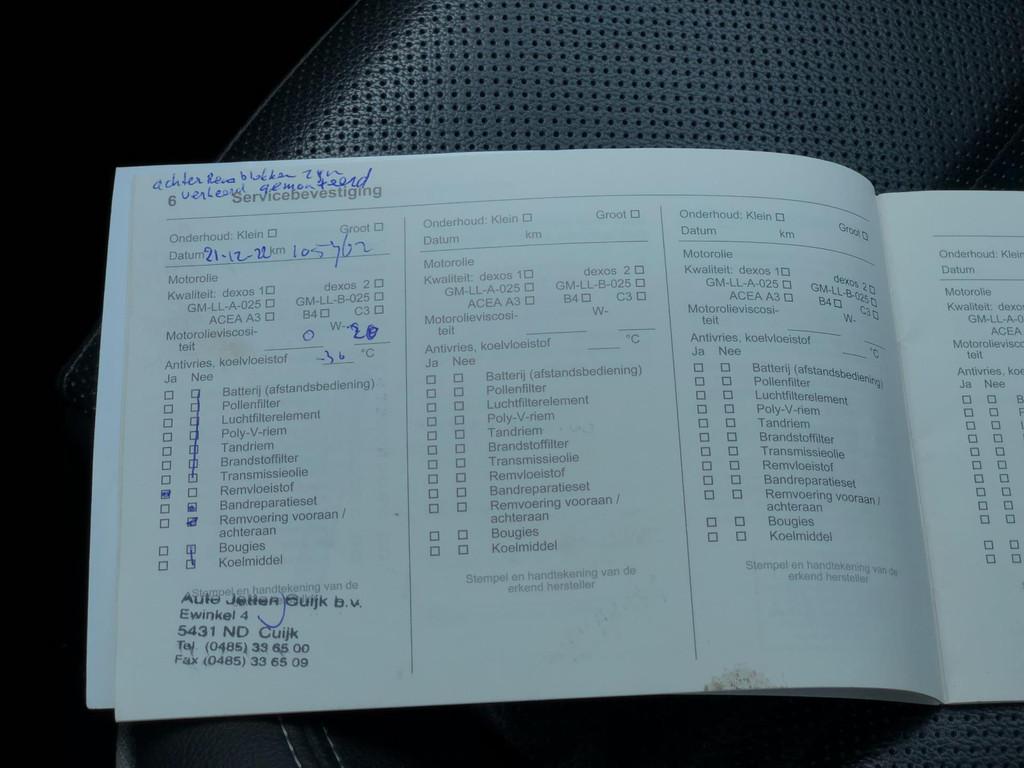 achter Remblokken zyn
verkeerd gemonteerd
6 Servicebevestiging
Onderhoud: Klein Groot
Datum 21-12-22 km 105762
Motorolie
Kwaliteit: dexos 1 dexos 2
GM-LL-A-025 GM-LL-B-025
ACEA A3 B4 C3
Motorolieviscosi-
teit 0 W- 20
Antivries, koelvloeistof -36 °C
Ja Nee
Batterij (afstandsbediening)
Pollenfilter
Luchtfilterelement
Poly-V-riem
Tandriem
Brandstoffilter
Transmissieolie
Remvloeistof
Bandreparatieset
Remvoering vooraan /
achteraan
Bougies
Koelmiddel
Stempel en handtekening van de
Auto Jetten Cuijk b.v.
Ewinkel 4
5431 ND Cuijk
Tel. (0485) 33 65 00
Fax (0485) 33 65 09
Onderhoud: Klein Groot
Datum km
Motorolie
Kwaliteit: dexos 1 dexos 2
GM-LL-A-025 GM-LL-B-025
ACEA A3 B4 C3
Motorolieviscosi-
teit W-
Antivries, koelvloeistof °C
Ja Nee
Batterij (afstandsbediening)
Pollenfilter
Luchtfilterelement
Poly-V-riem
Tandriem
Brandstoffilter
Transmissieolie
Remvloeistof
Bandreparatieset
Remvoering vooraan /
achteraan
Bougies
Koelmiddel
Stempel en handtekening van de
erkend hersteller
Onderhoud: Klein Groot
Datum km
Motorolie
Kwaliteit: dexos 1 dexos 2
GM-LL-A-025 GM-LL-B-025
ACEA A3 B4 C3
Motorolieviscosi-
teit W-
Antivries, koelvloeistof °C
Ja Nee
Batterij (afstandsbediening)
Pollenfilter
Luchtfilterelement
Poly-V-riem
Tandriem
Brandstoffilter
Transmissieolie
Remvloeistof
Bandreparatieset
Remvoering vooraan /
achteraan
Bougies
Koelmiddel
Stempel en handtekening van de
erkend hersteller
Onderhoud: Klein
Datum
Motorolie
Kwaliteit: dexos
GM-LL-A-0
ACEA
Motorolievisco
teit
Antivries, koelv
Ja Nee